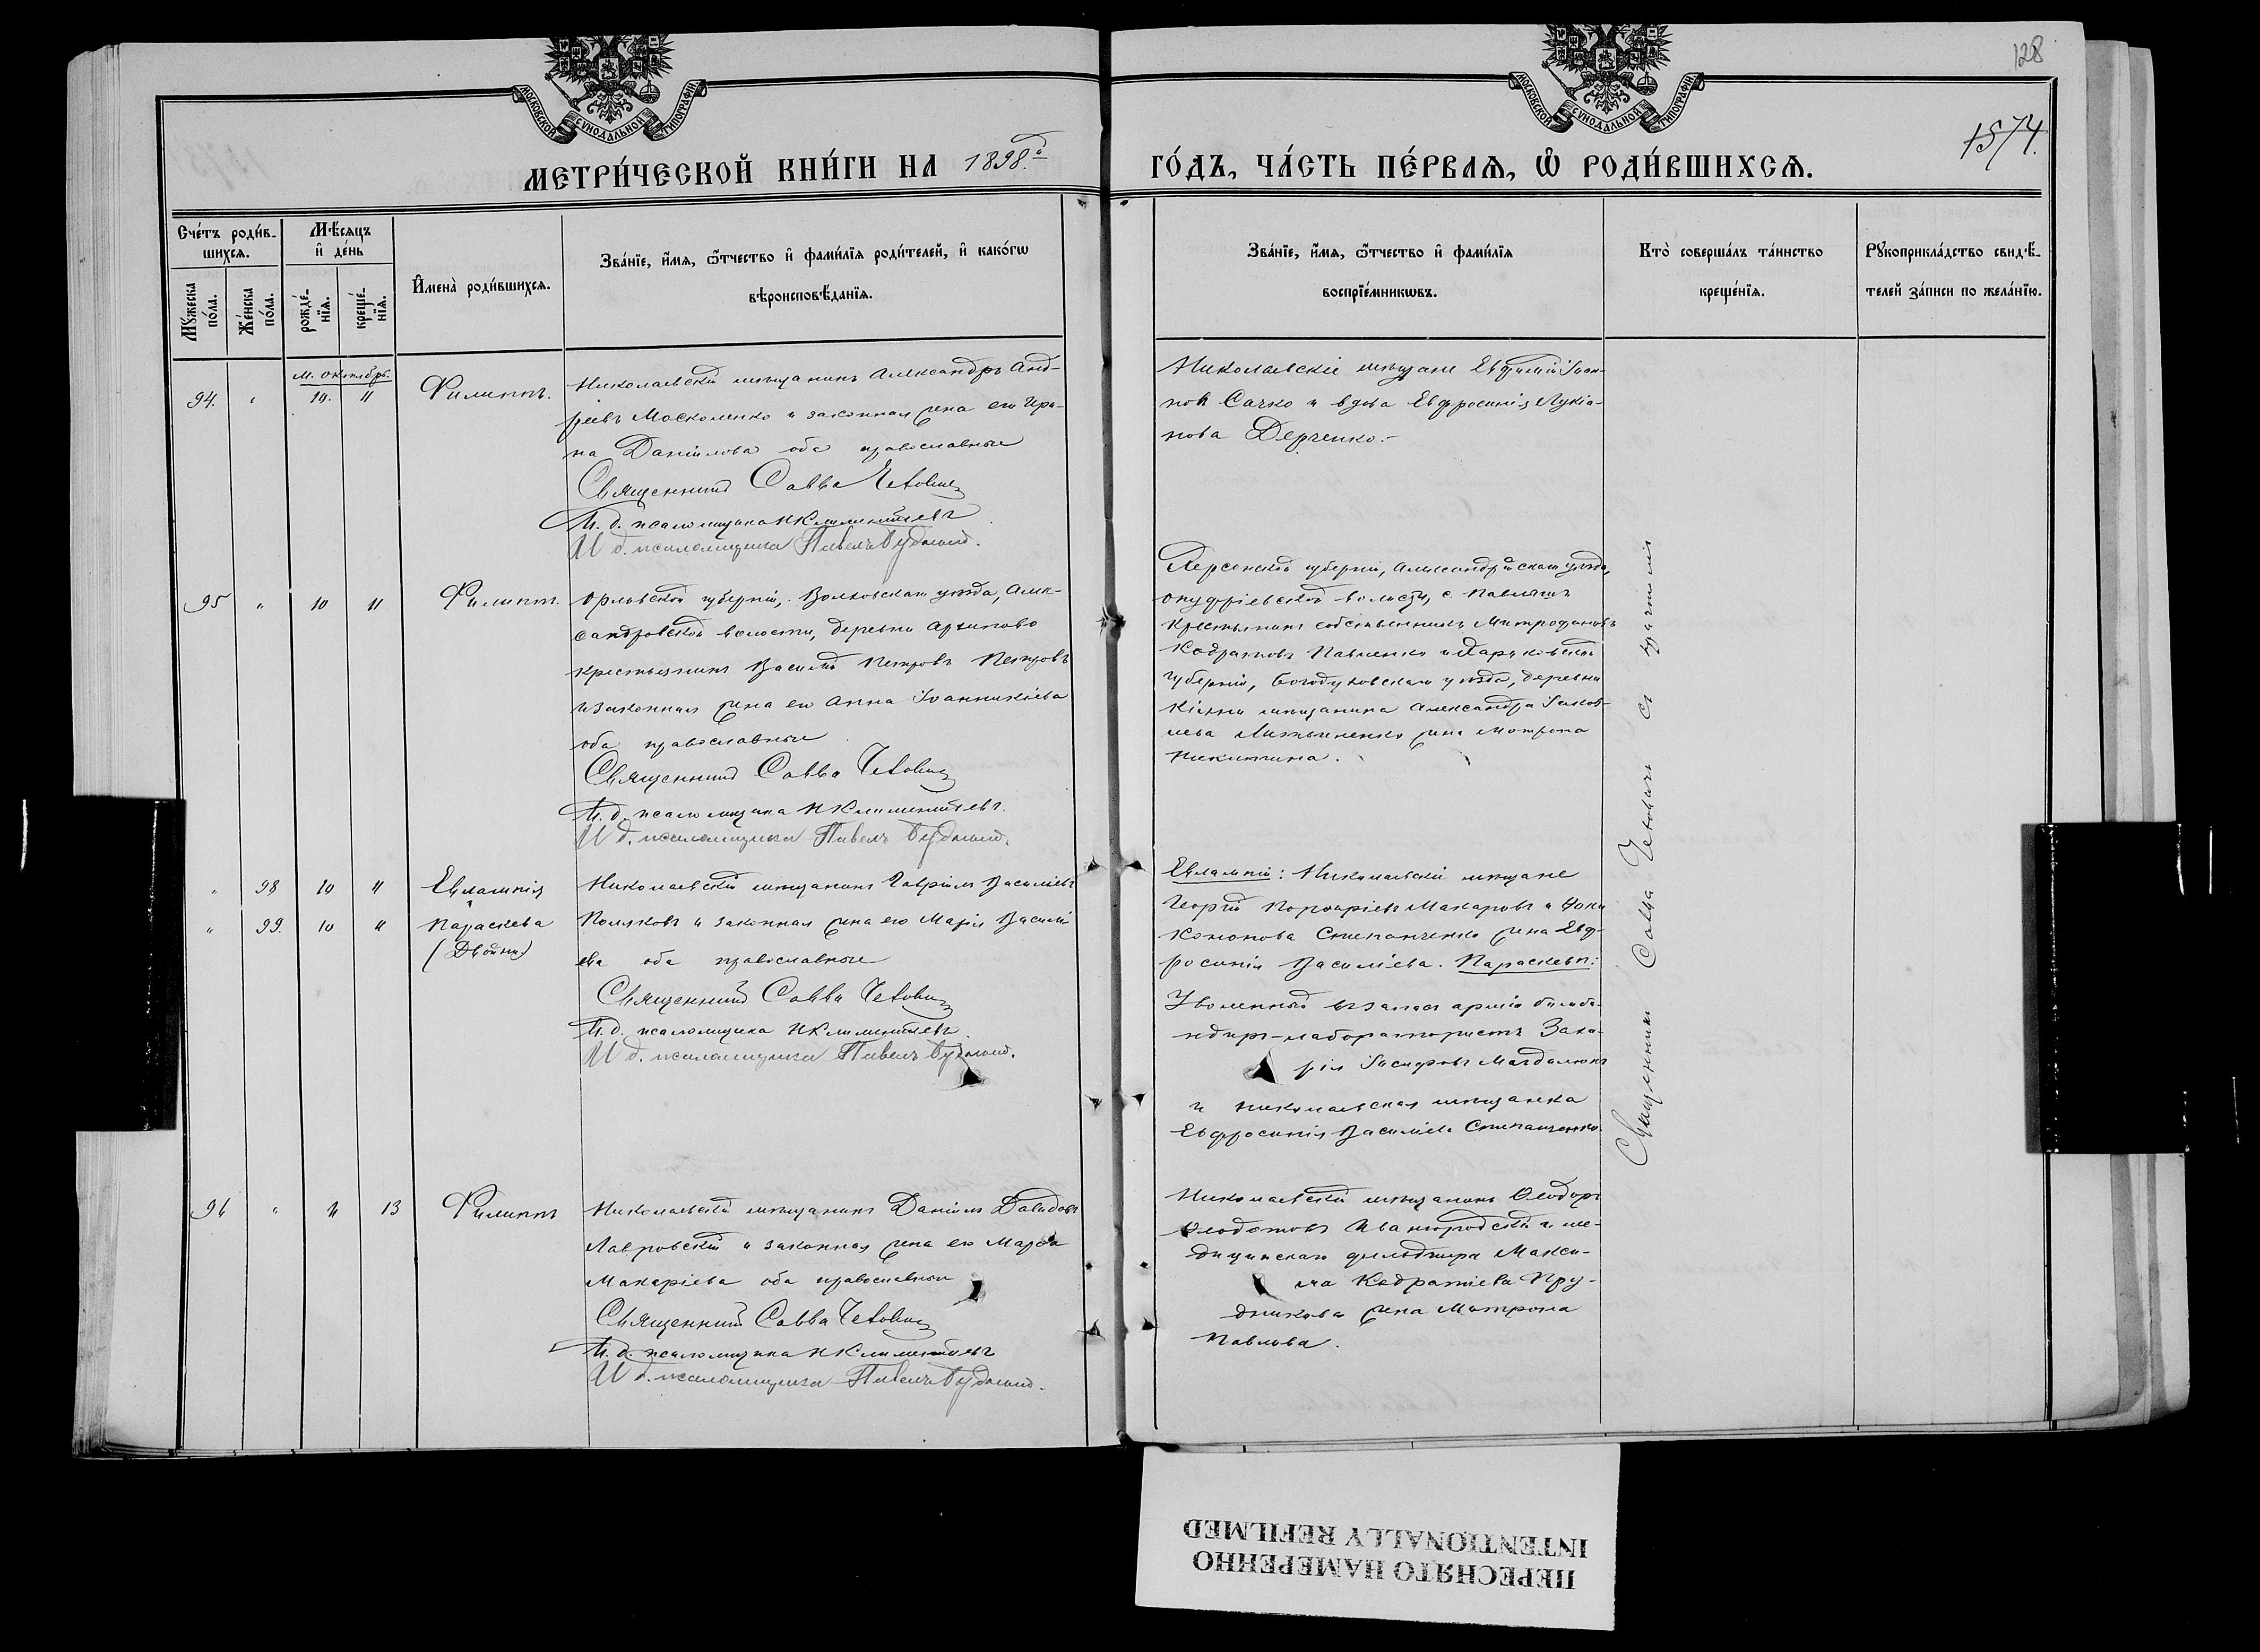 128
1574.
МОСКОВСКОЙ СѴНОДАЛЬНОЙ ТИПОГРАФІИ
МОСКОВСКОЙ СѴНОДАЛЬНОЙ ТИПОГРАФІИ
МЕТРИ́ЧЕСКОЙ КНИ́ГИ НА 1898й
ГО́ДЪ, ЧА́СТЬ ПЕ́РВАѦ, Ѡ҆ РОДИ́ВШИХСѦ.
Сче́тъ роди́в-
шихсѧ.
Мꙋ́жеска по́ла.
Же́нска по́ла.
Мѣ́сѧцъ
и҆ де́нь
рожде́-
нїѧ.
креще́-
нїѧ.
И҆мена̀ роди́вшихсѧ.
Зва́нїе, и҆́мѧ, ѻ҆́тчество и҆ фами́лїѧ роди́телей, и҆ како́гѡ
вѣроисповѣ́данїѧ.
Зва́нїе, и҆́мѧ, ѻ҆́тчество и҆ фами́лїѧ
воспрїе́мникѡвъ.
Кто̀ соверша́лъ та́инство
креще́нїѧ.
Рꙋкоприкла́дство свидѣ́-
телей за́писи по жела́нїю.
м. октябрь.
94. " 10. 11 Филиппъ.
Николаевскій мѣщанинъ Александръ Анд-
реевъ Москоленко и законная жена его Ири-
на Даніилова оба православные
Священникъ Савва Четовичъ
И. д. псаломщика Н Климентьевъ
И д. псаломщика Павелъ
Николаевскіе мѣщане Евфимій Іоан-
новъ Сачко и вдова Евфросинія Лукіа-
нова Дерченко.-
95 " 10 11 Филиппъ.
Орловской губерніи, Волховскаго уѣзда, Алек-
сандровской волости, деревни Архипово
крестьянинъ Василій Петровъ Петровъ
и законная жена его Анна Іоанникіева
оба православные
Священникъ Савва Четовичъ
И. д. псаломщика Н Климентьевъ.
И д. псаломщика Павелъ
Херсонской губерніи, Александрійскаго уѣзда,
Онуфріевской волости, с. Павлышъ
крестьянинъ собственникъ Митрофанъ
Кодратовъ Павленко и Харьковской
губерніи, Богодуховскаго уѣзда, деревни
мѣщанина Александра Іаков-
лева Литвиненко жена Матрона
Никитина.
" 98 10 11 Евлампія
" 99. 10 11 Параскева
(Двойни)
Николаевскій мѣщанинъ Гавріилъ Василіевъ
Поляковъ и законная жена его Марія Василі-
ева оба православные
Священникъ Савва Четовичъ
И. д. псаломщика Н Климентьевъ
И д. псаломщика Павелъ
Евлампіи: Николаевскіе мѣщане
Георгій Порфиріевъ Макаровъ и Фоки
Кононова Степанченко жена Евф-
росинія Василіева. Параскевѣ:
Уволенный въ запасъ арміи бомба-
ндиръ-лаборатористъ Заха-
рія Іосифовъ Магдалюкъ
и николаевская мѣщанка
Евфросинія Василіева Степанченко.
96 " 11 13 Филиппъ
Николаевскій мѣщанинъ Даніилъ Давидовъ
Лавровскій и законная жена его Марфа
Макаріева оба православные
Священникъ Савва Четовичъ
И. д. псаломщика Н Климентьевъ
И д. псаломщика Павелъ
Николаевскій мѣщанинъ Ѳеодоръ
Ѳеодотовъ Ивангородскій и ме-
дицинскаго фельдшера Макси-
ма Кодратіева Пру-
дникова жена Матрона
Павлова.
Священникъ Савва Четовичъ съ причтомъ
ПЕРЕСНЯТО НАМЕРЕННО
INTENTIONALLY REFILMED